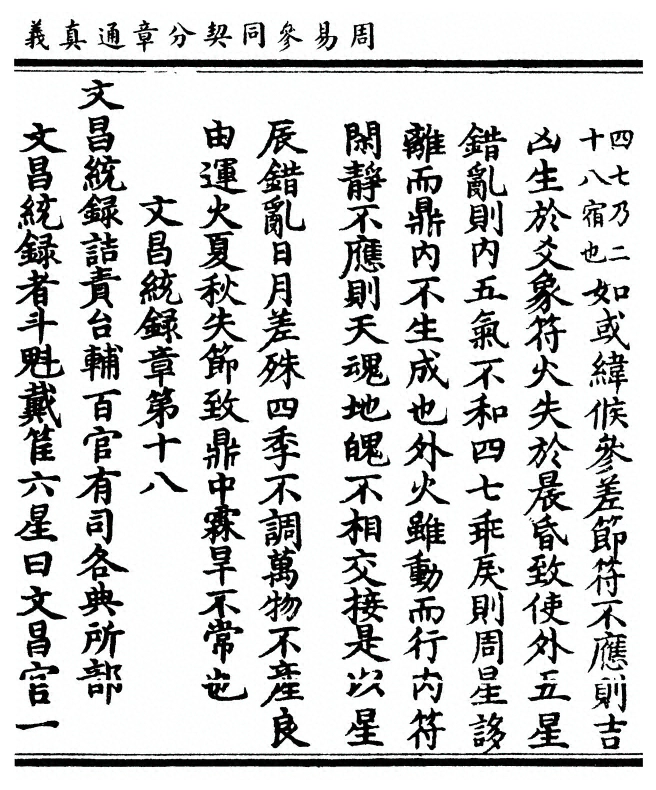 周易參同契分章通真義
四七乃二
十八宿也
如或緯候參差節符不應則吉
凶生於爻象符火失於晨昏致使外五星
錯亂則内五氣不和四七乖戾則周星謻
離而鼎内不生成也外火雖動而行内符
閑靜不應則天魂地魄不相交接是以星
辰錯亂日月差殊四季不調萬物不產良
由運火夏秋失節致鼎中霖旱不常也
文昌統録章第十八
文昌統録詰責台輔百官有司各典所部
文昌統録者斗魁戴筐六星曰文昌宫一